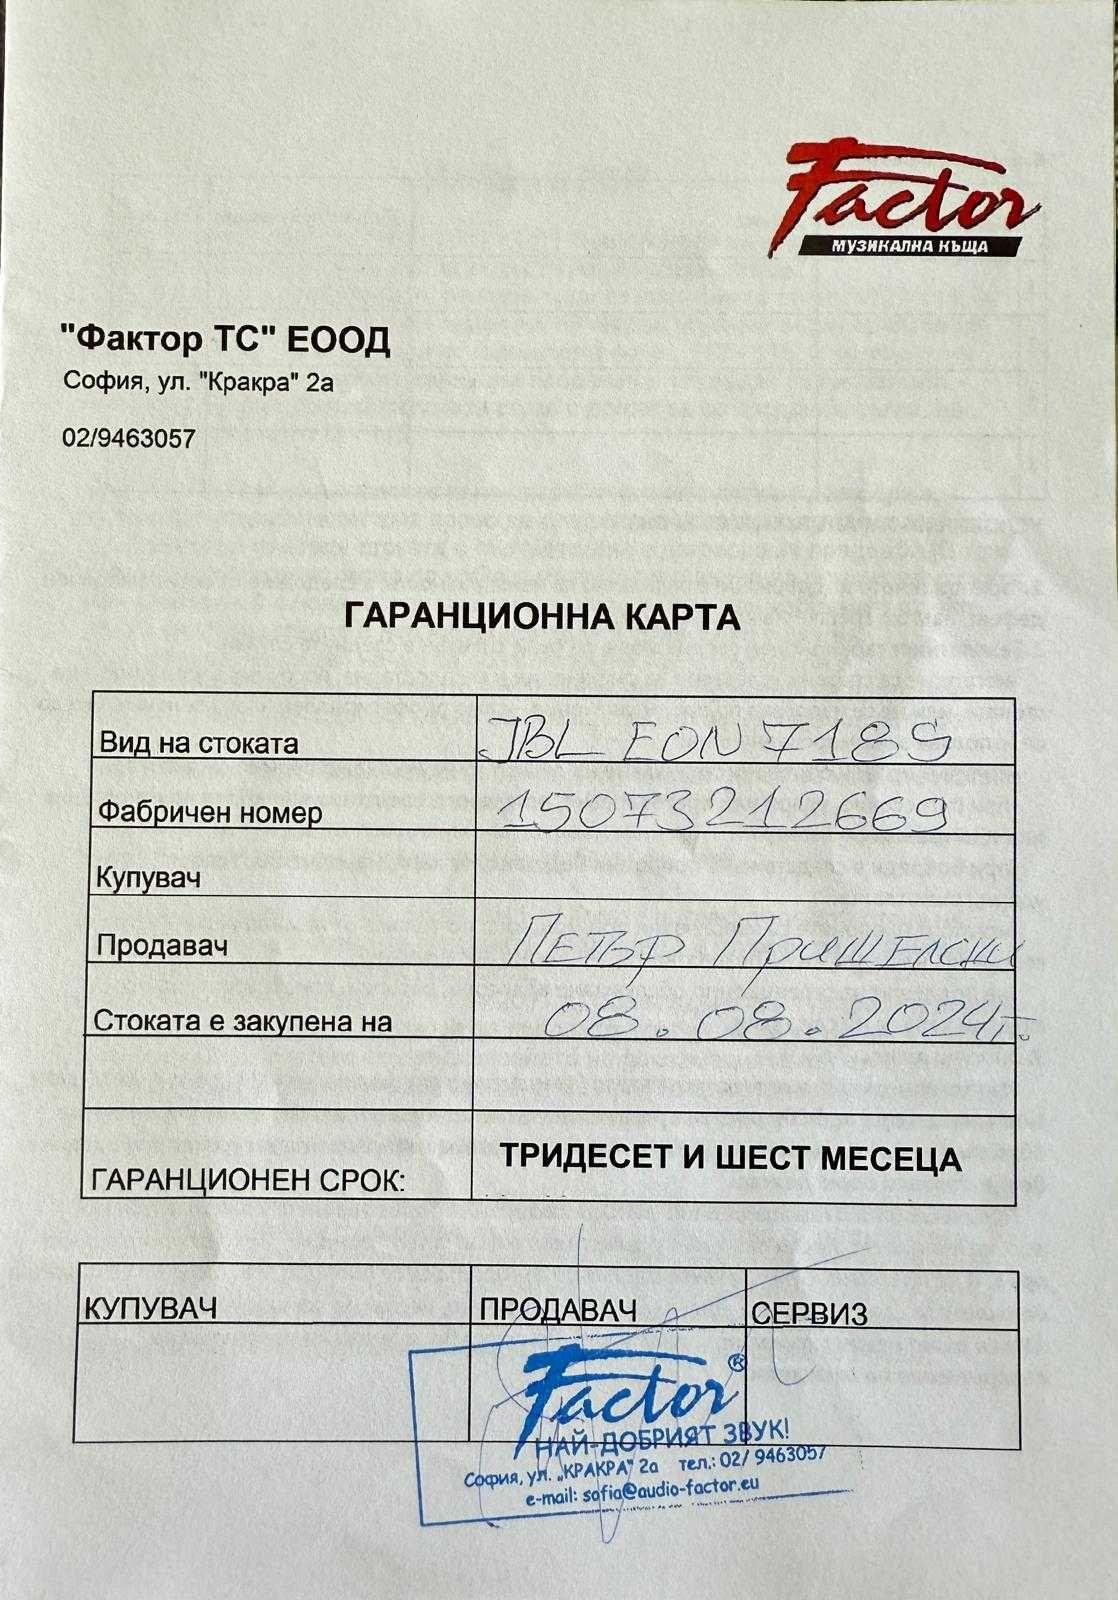 Factor
МУЗИКАЛНА КЪЩА
"Фактор ТС" ЕООД
София, ул. "Кракра" 2а
02/9463057
ГАРАНЦИОННА КАРТА
Вид на стоката JBL EON 718S
Фабричен номер 15073212669
Купувач
Продавач Петър Пришелски
Стоката е закупена на 08.08.2024г.
ГАРАНЦИОНЕН СРОК: ТРИДЕСЕТ И ШЕСТ МЕСЕЦА
КУПУВАЧ ПРОДАВАЧ СЕРВИЗ
Factor®
НАЙ-ДОБРИЯТ ЗВУК!
София, ул. „КРАКРА" 2а тел.: 02/ 9463057
e-mail: sofia@audio-factor.eu